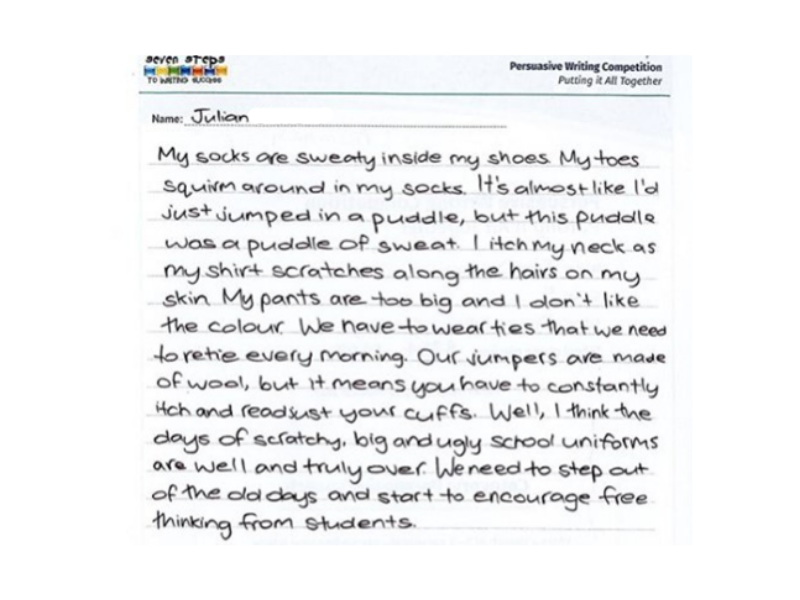 seven steps
TO WRITING SUCCESS
Persuasive Writing Competition
Putting it All Together
Name: Julian
My socks are sweaty inside my shoes. My toes
squirm around in my socks. It's almost like I'd
just jumped in a puddle, but this puddle
was a puddle of sweat. I itch my neck as
my shirt scratches along the hairs on my
skin. My pants are too big and I don't like
the colour. We have to wear ties that we need
to retie every morning. Our jumpers are made
of wool, but it means you have to constantly
itch and readjust your cuffs. Well, I think the
days of scratchy, big and ugly school uniforms
are well and truly over. We need to step out
of the old days and start to encourage free
thinking from students.